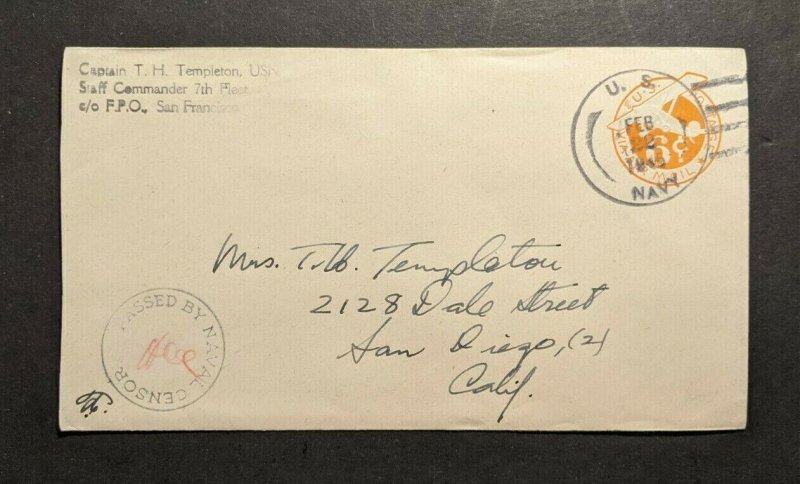 Captain T. H. Templeton, USN
Staff Commander 7th Fleet
c/o F.P.O., San Francisco
U. S.
FEB
22
1945
NAVY
U.S.
6¢
VIA AIR MAIL
Mrs. T.H. Templeton
2128 Dale Street
San Diego, (2)
Calif.
PASSED BY NAVAL CENSOR